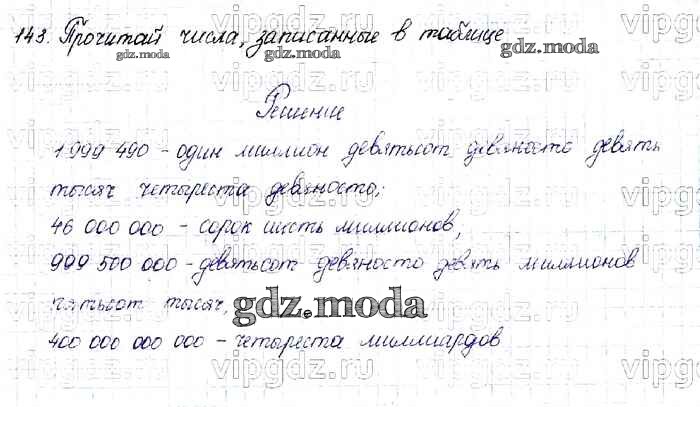 143. Прочитай числа, записанные в таблице
gdz.moda gdz.moda
Решение
1 999 490 - один миллион девятьсот девяносто девять
тысяч четыреста девяносто;
46 000 000 - сорок шесть миллионов,
999 500 000 - девятьсот девяносто девять миллионов
пятьсот тысяч,
gdz.moda
400 000 000 000 - четыреста миллиардов
vipgdz.moda